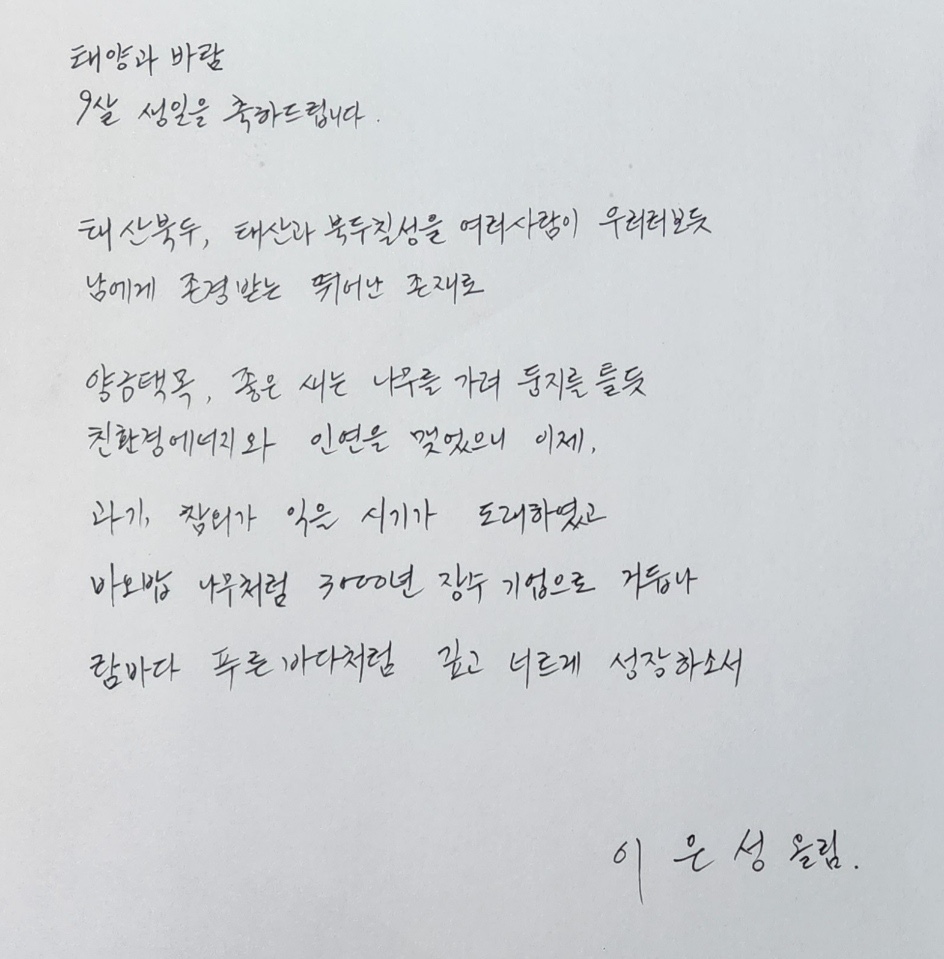 태양과 바람
9살 생일을 축하드립니다.
태산북두, 태산과 북두칠성을 여러사람이 우러러보듯
남에게 존경받는 뛰어난 존재로
양금택목, 좋은 새는 나무를 가려 둥지를 틀듯
친환경에너지와 인연을 맺었으니 이제,
과기, 참외가 익을 시기가 도래하였고
바오밥 나무처럼 3000년 장수 기업으로 거듭나
람바다 푸른바다처럼 깊고 너르게 성장하소서
이은성 올림.